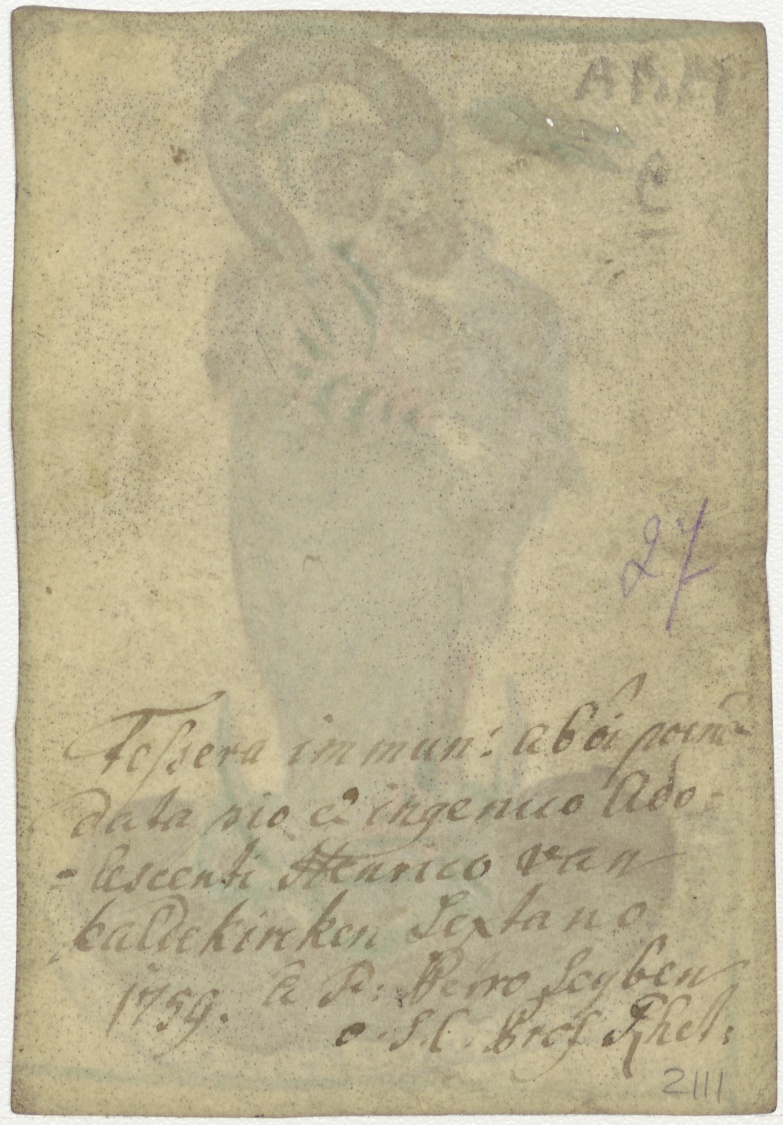 27
Tessera immun: ab oi poena
data pio & ingenuo Ado-
-lescenti Henrico van
kaldekircken Sextano
1759. à P: Petro Seyben
o. S. C. Prof Rhet:
2111